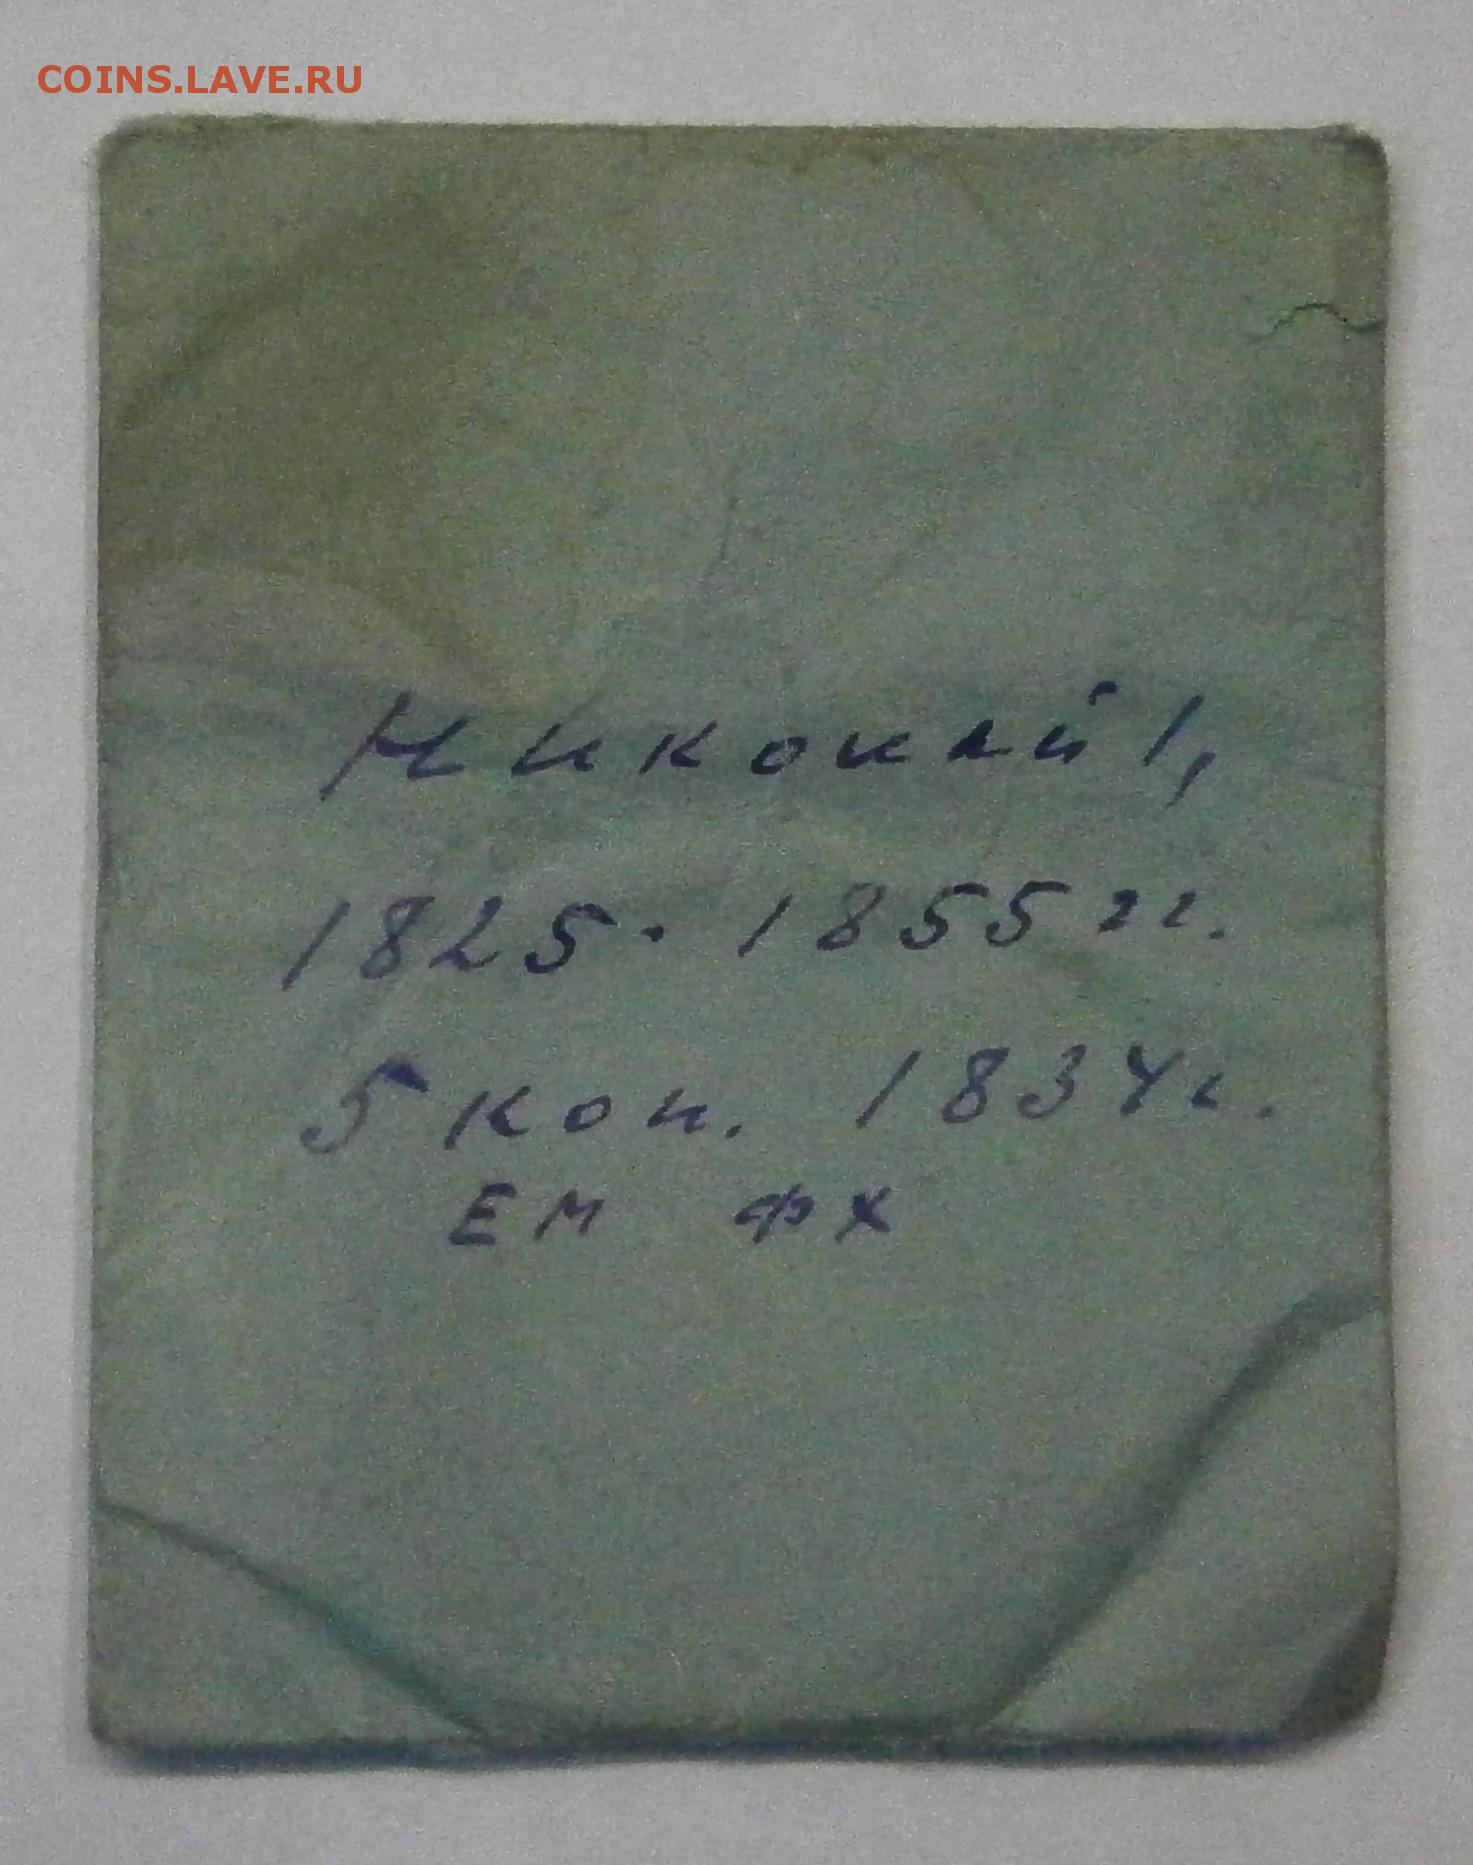 COINS.LAVE.RU
Николай I,
1825 - 1855 гг.
5 коп. 1834 г.
ЕМ ФХ